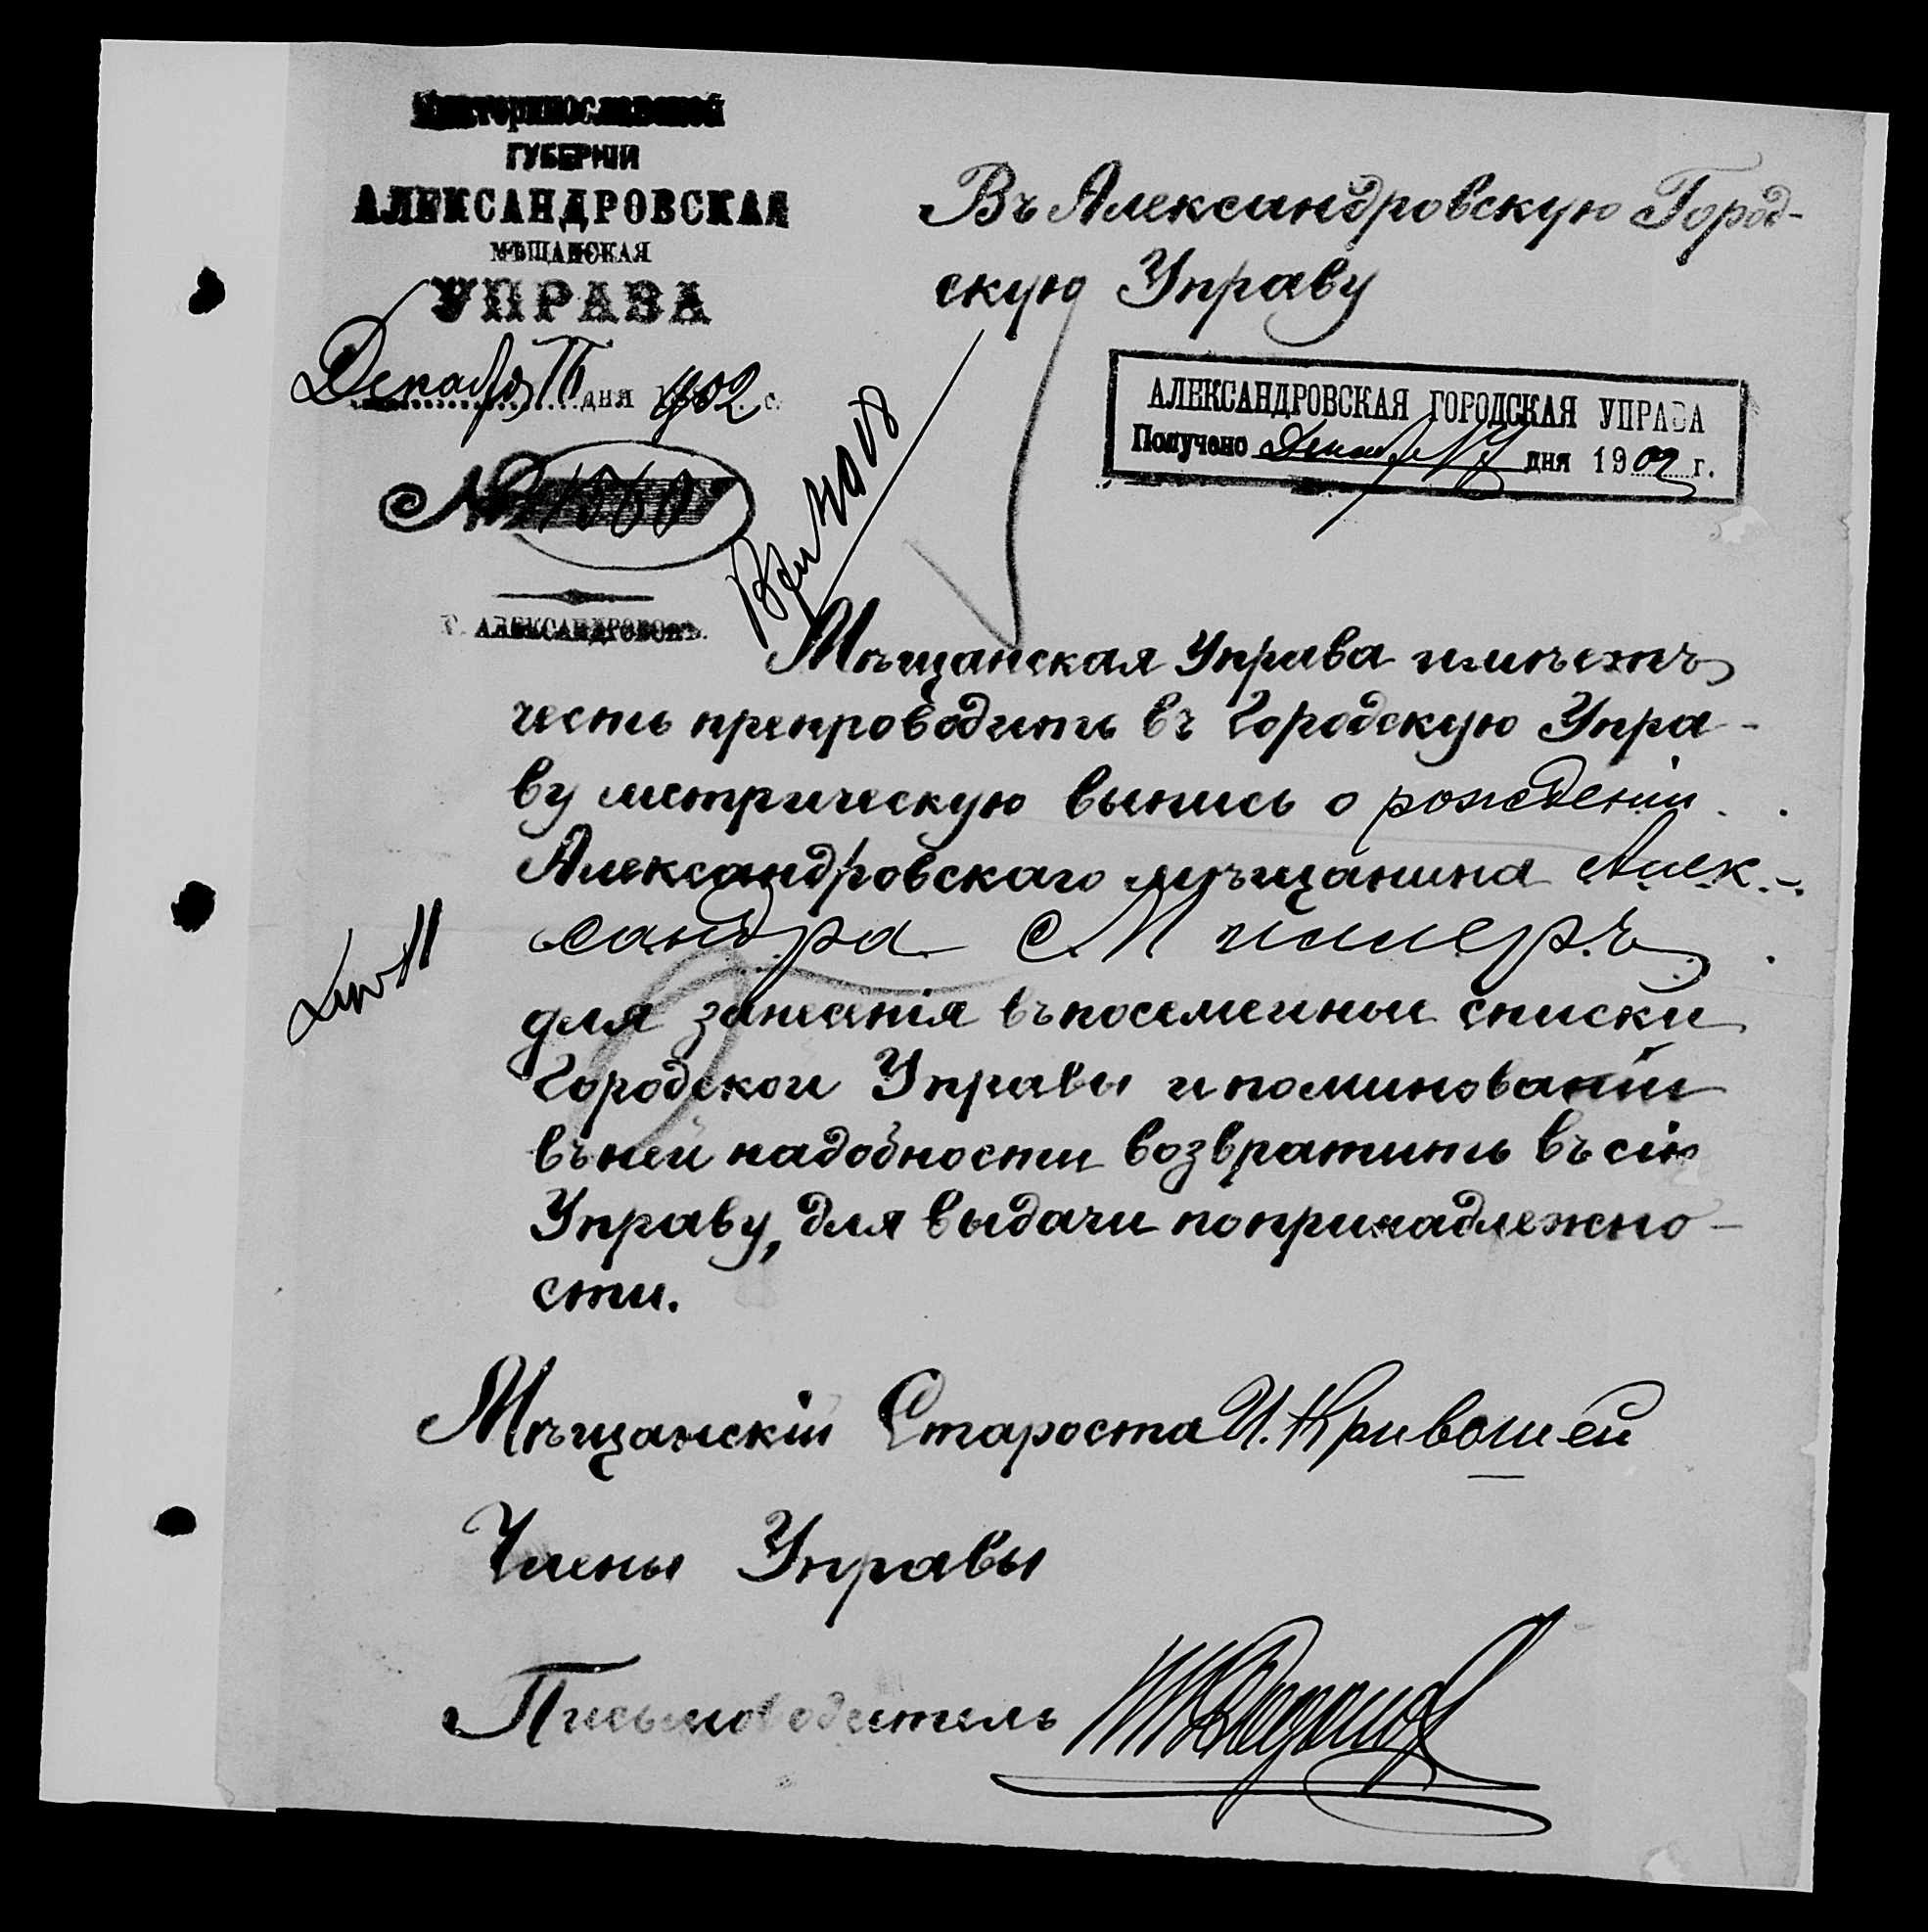 Екатеринославской
ГУБЕРНІИ
АЛЕКСАНДРОВСКАЯ
МѢЩАНСКАЯ
УПРАВА
Декабря 16 дня 1902 г.
№ 1860
г. АЛЕКСАНДРОВСКЪ.
Въ Александровскую Город-
скую Управу
АЛЕКСАНДРОВСКАЯ ГОРОДСКАЯ УПРАВА
Получено Декабря 17 дня 1902 г.
Мѣщанская Управа имѣетъ
честь препроводить въ Городскую Упра-
ву метрическую выпись о рожденіи
Александровскаго мѣщанина Алек-
сандра Миллеръ
для занесенія въ посемейные списки
Городской Управы и поминованіи
въ ней надобности возвратить въ сію
Управу, для выдачи по принадлежно-
сти.
Мѣщанскій Староста И. Кривошей
Члены Управы
Письмоводитель